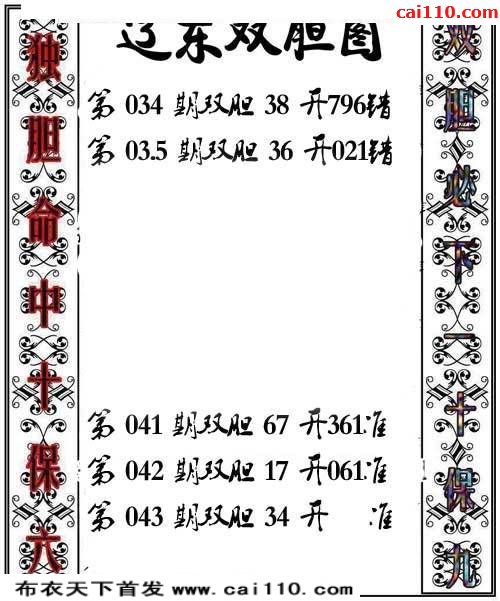 cai110.com
辽东双胆图
独胆命中十保六
第 034 期双胆 38 开796错
第 03.5 期双胆 36 开021错
第 041 期双胆 67 开361准
第 042 期双胆 17 开061准
第 043 期双胆 34 开 准
双胆必下一十保九
布衣天下首发 www.cai110.com